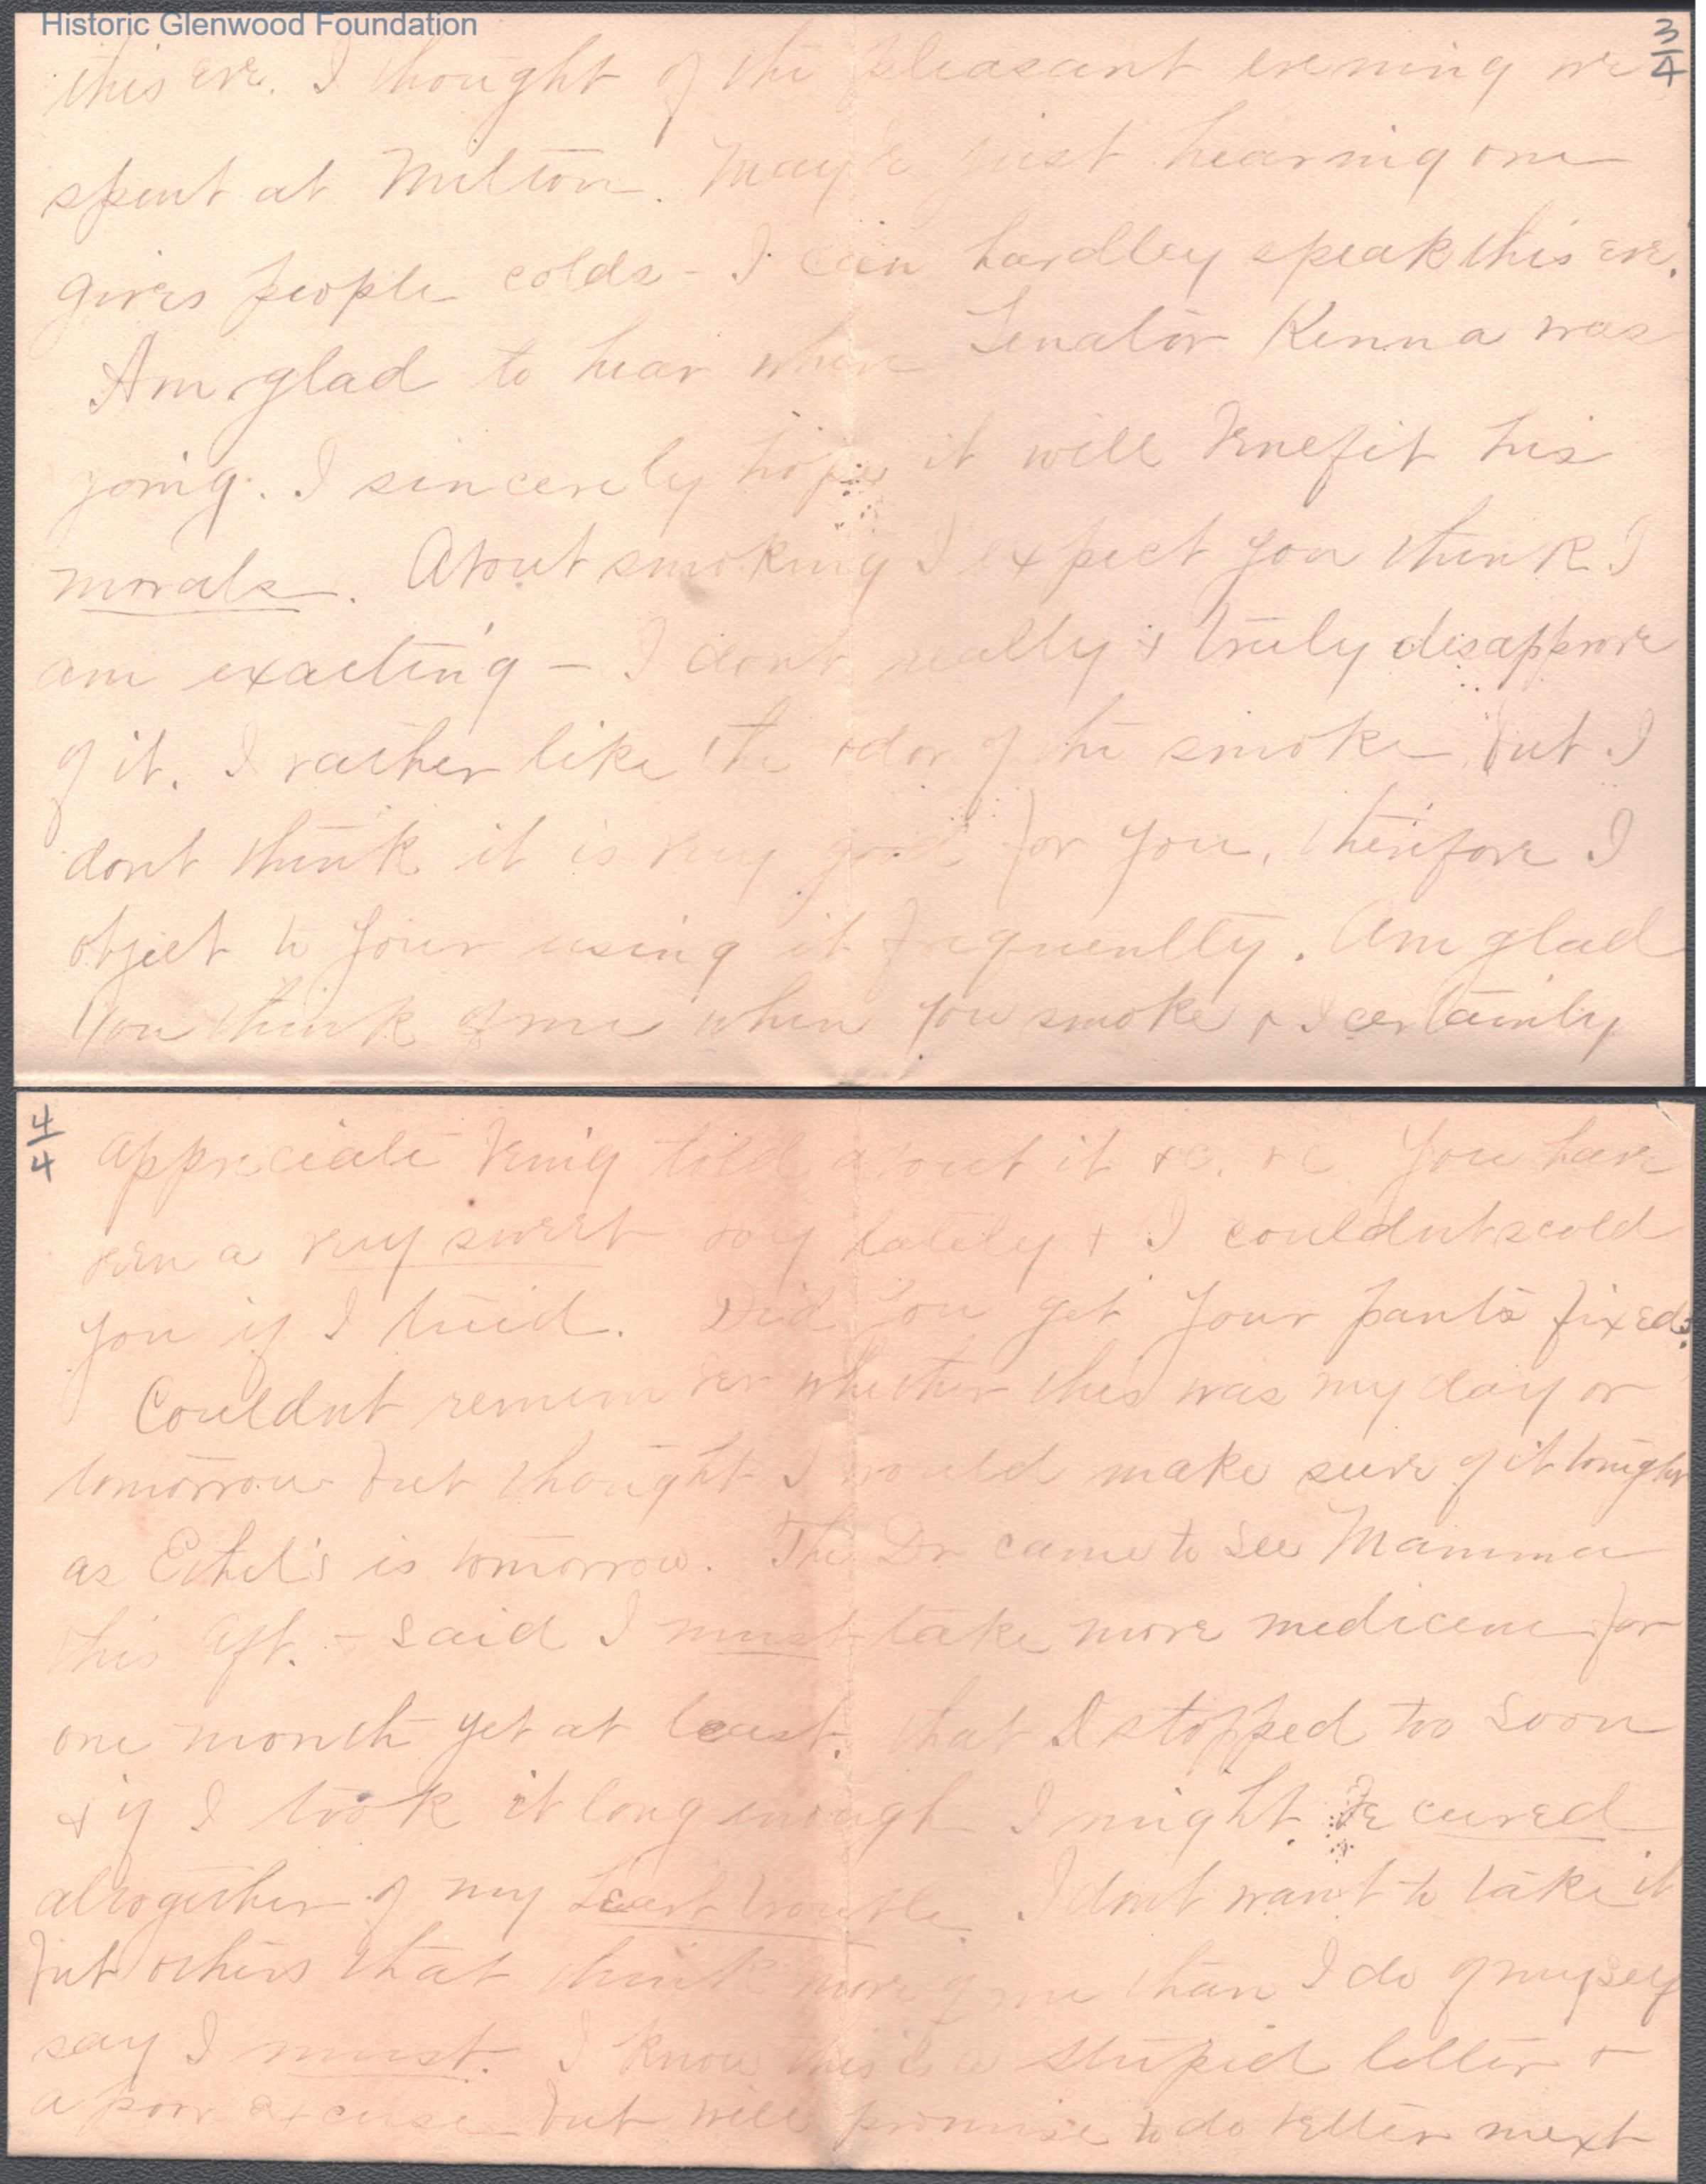 Historic Glenwood Foundation
3/4
this eve. I thought of the pleasant evening we
spent at Milton. Maybe just hearing one
gives people colds - I can hardley speak this eve.
Am glad to hear where Senator Kenna was
going. I sincerely hope it will benefit his
morals. About smoking I expect you think I
am exacting - I dont really & truly disapprove
of it. I rather like the odor of the smoke but I
dont think it is very good for you, therefore I
object to your using it frequently. Am glad
you think of me when you smoke & I certainly
4/4
appreciate being told about it &c. &c You have
been a very sweet boy lately & I couldnt scold
you if I tried. Did you get your pants fixed?
Couldnt remember whether this was my day or
tomorrow but thought I would make sure of it tonight
as Ethel's is tomorrow. The Dr came to see Mamma
this aft. - said I must take more medicene for
one month yet at least. that I stopped too soon
& if I took it long enough I might be cured
altogether of my heart trouble. I dont want to take it
but others that think more of me than I do of myself
say I must. I know this is a stupid letter &
a poor excuse but will promise to do better next